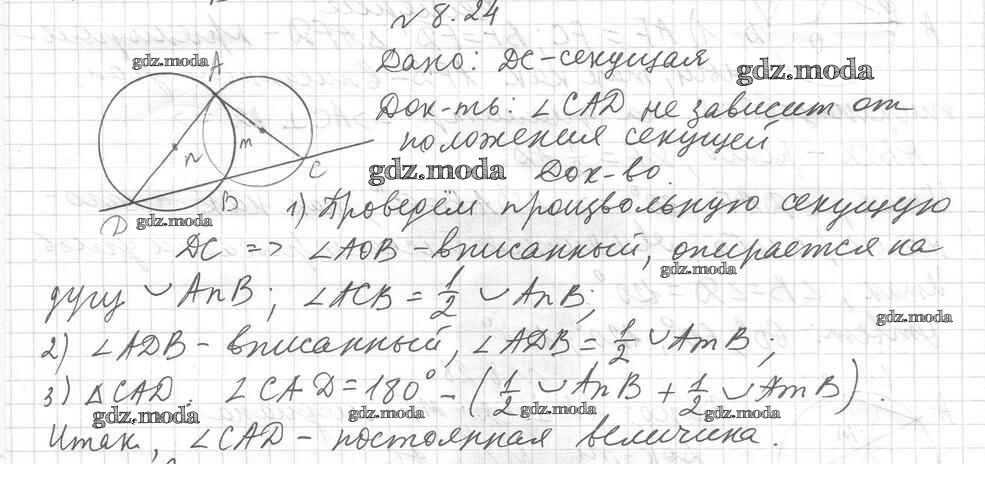 N 8.24
gdz.moda
A
Дано: DC-секущая
gdz.moda
Док-ть: ∠CAD не зависит от
положения секущей
n
m
C
gdz.moda
Док-во.
D
B
gdz.moda
1) Проведём произвольную секущую
DC => ∠AOB - вписанный, опирается на
gdz.moda
дугу ◡ AnB; ∠ACB = 1/2 ◡ AnB;
gdz.moda
2) ∠ADB - вписанный, ∠ADB = 1/2 ◡AmB;
3) △CAD. ∠CAD = 180° - (1/2 ◡ AnB + 1/2 ◡ AmB).
gdz.moda gdz.moda gdz.moda gdz.moda
Итак, ∠CAD - постоянная величина.